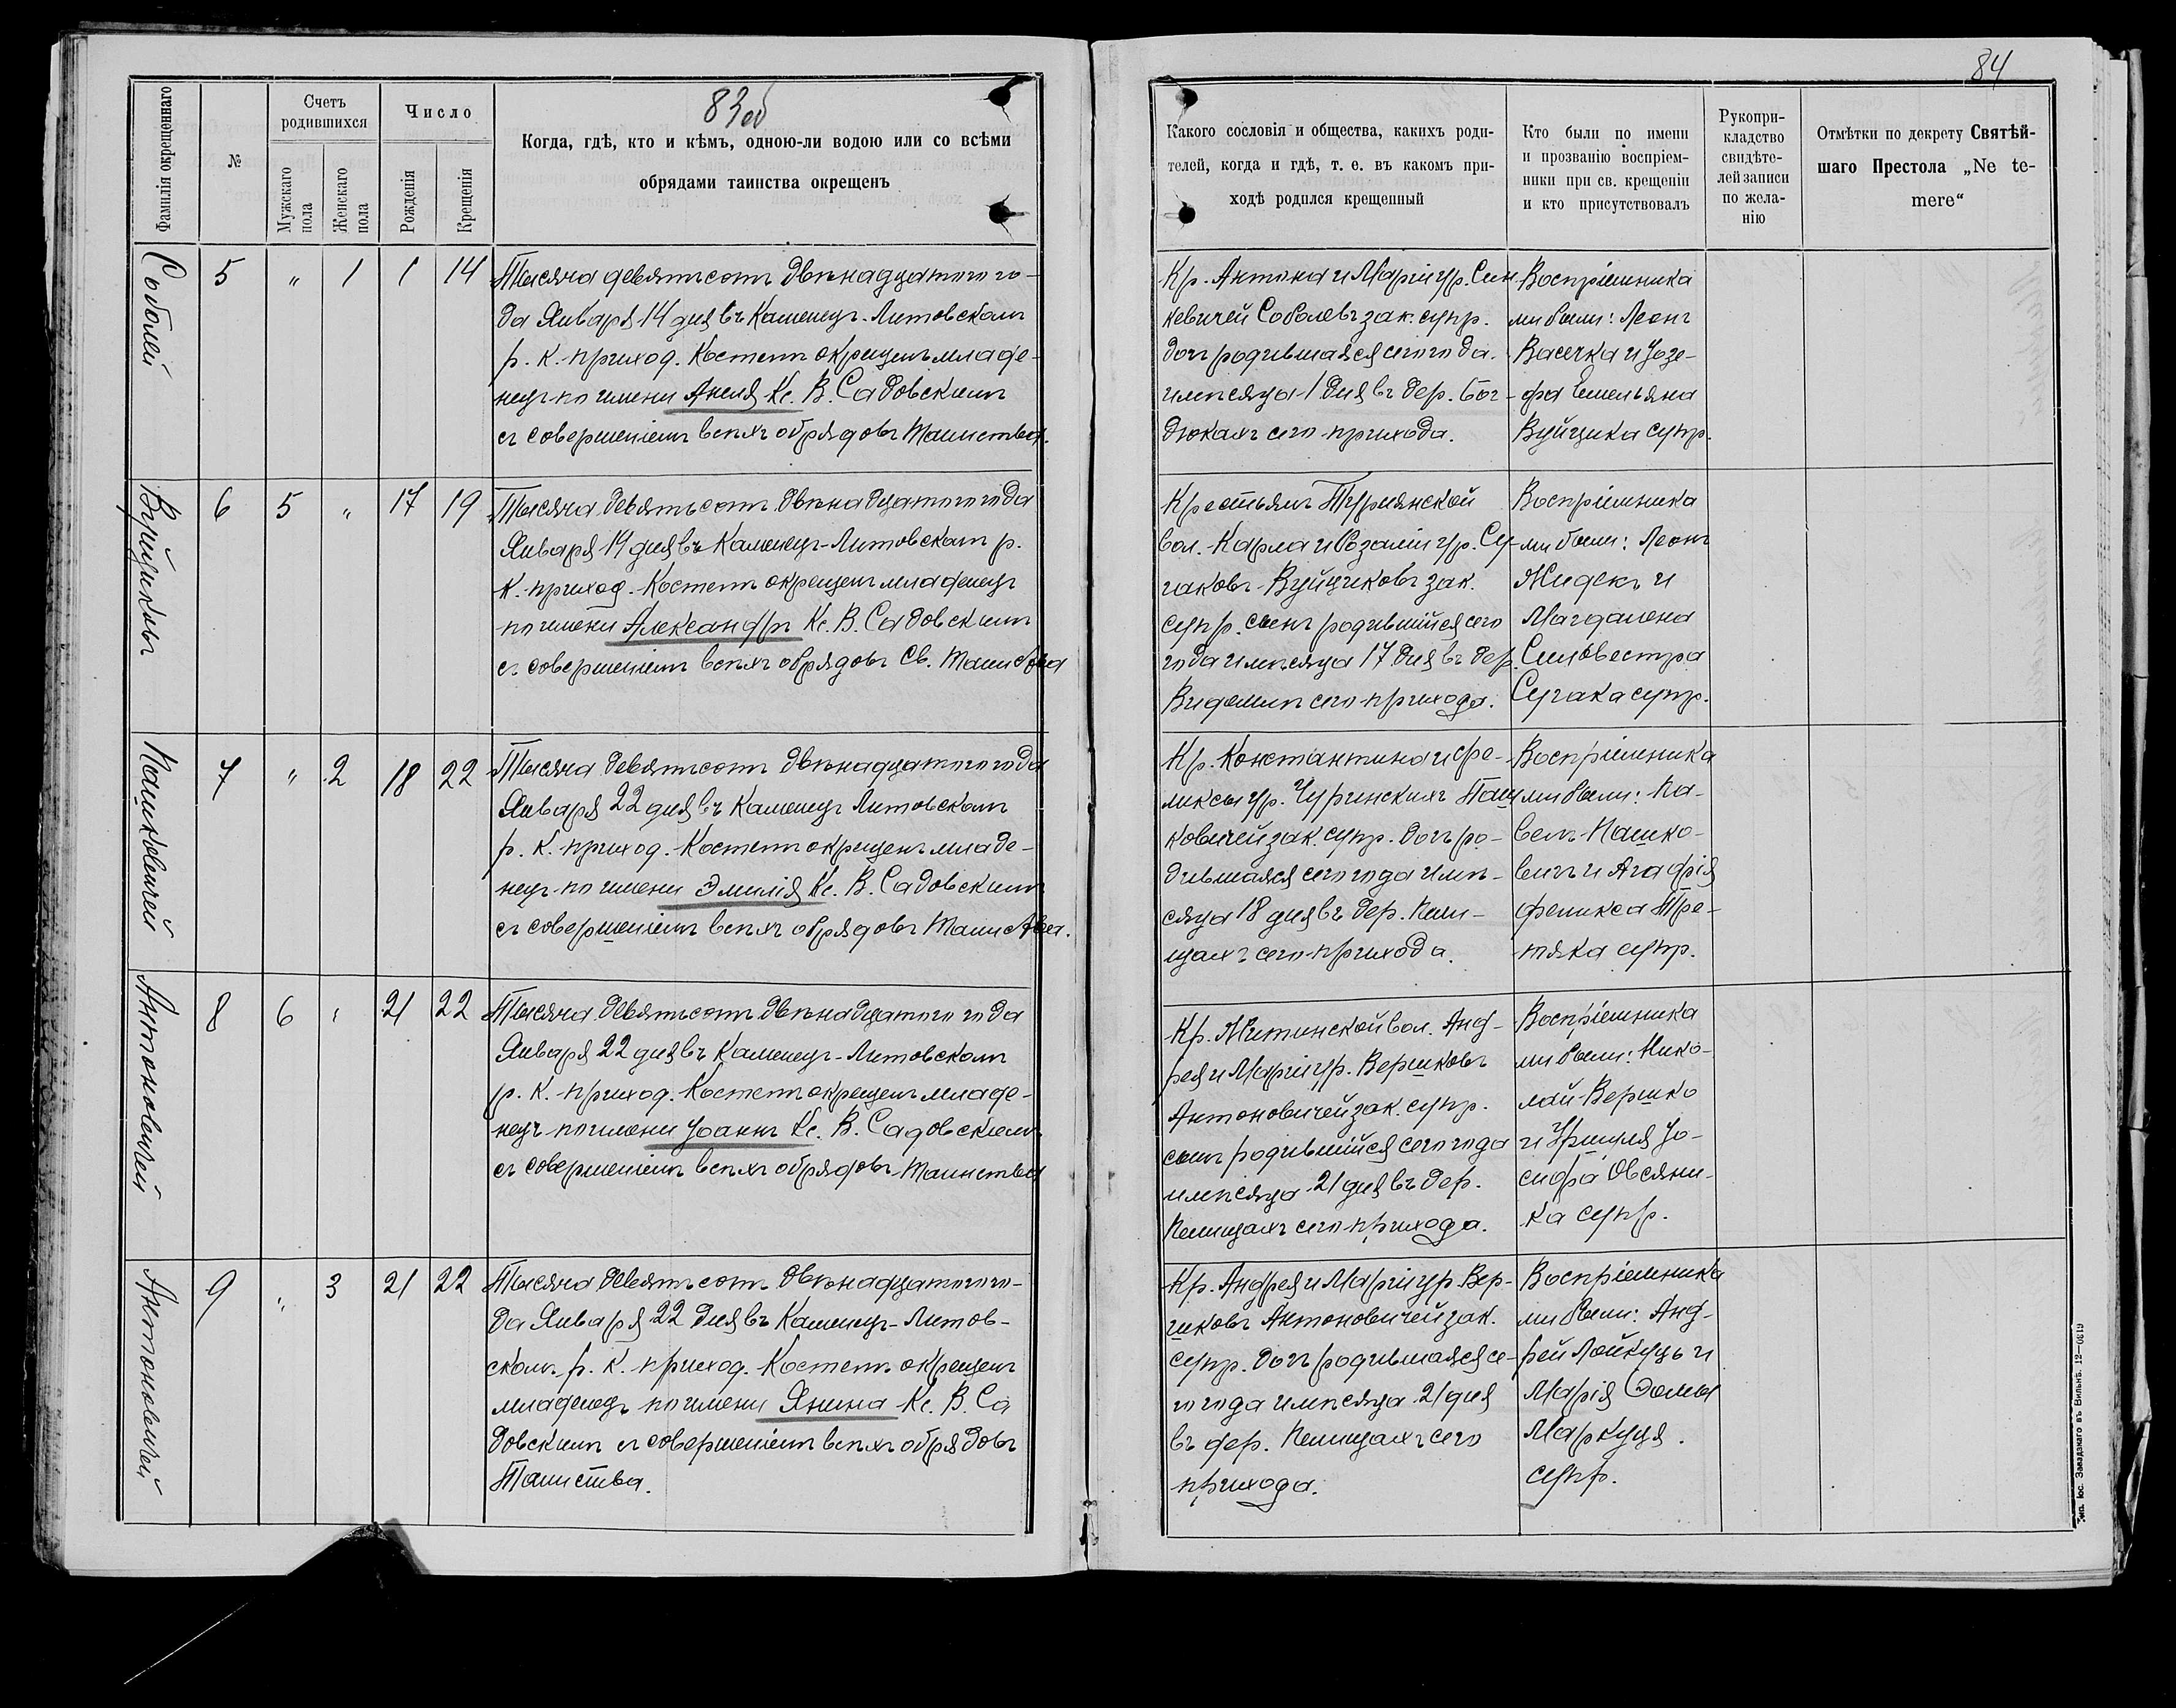 83об
84
Фамилія окрещеннаго
№
Счетъ
родившихся
Мужскаго
пола
Женскаго
пола
Число
Рожденія
Крещенія
Когда, гдѣ, кто и кѣмъ, одною-ли водою или со всѣми
обрядами таинства окрещенъ
Какого сословія и общества, какихъ роди-
телей, когда и гдѣ, т. е. въ какомъ при-
ходѣ родился крещенный
Кто были по имени
и прозванію воспріем-
ники при св. крещеніи
и кто присутствовалъ
Рукопри-
кладство
свидѣте-
лей записи
по жела-
нію
Отмѣтки по декрету Святѣй-
шаго Престола „Ne te-
mere“
Соболей
5 " 1 1 14
Тысяча девятьсотъ двѣнадцатого го-
да Января 14 дня въ Каменец-Литовскомъ
р. к. приход. Костелѣ окрещенъ младе-
нецъ по имени Анеля Кс. В. Садовскимъ
съ совершеніемъ всѣхъ обрядовъ Таинства.
Кр. Антона и Маріи ур. Син-
кевичей Соболевъ зак. супр.
дочь родившаяся сего года
и мѣсяца 1 дня въ дер. Бог-
дюкахъ сего прихода.
Воспріемника
ми были: Леонъ
Васечка и Юзе-
фа Емельяна
Вуйцика супр.
Вуйциковъ
6 5 " 17 19
Тысяча девятьсотъ двѣнадцатого года
Января 19 дня въ Каменец-Литовскомъ р.
к. приход. Костелѣ окрещенъ младенецъ
по имени Александръ Кс. В. Садовскимъ
съ совершеніемъ всѣхъ обрядовъ Св. Таинства
Крестьянъ Турнянской
вол. Карла и Розаліи ур. Су-
чаковъ Вуйциковъ зак.
супр. сынъ родившійся сего
года и мѣсяца 17 дня въ дер.
Видомлѣ сего прихода.
Воспріемника
ми были: Леонъ
Жидекъ и
Магдалена
Сильвестра
Сучака супр.
Пашкевичей
7 " 2 18 22
Тысяча девятьсотъ двѣнадцатого года
Января 22 дня въ Каменец Литовскомъ
р. к. приход. Костелѣ окрещенъ младе-
нецъ по имени Эмилія Кс. В. Садовскимъ
съ совершеніемъ всѣхъ обрядовъ Таинства.
Кр. Константина и Фе-
ликсы ур. Чуринскихъ Паш
ковичей зак. супр. дочь ро-
дившаяся сего года и мѣ-
сяца 18 дня въ дер. Пели-
щахъ сего прихода.
Воспріемника
ми были: Па-
велъ Пашко-
вичъ и Агафія
Феликса Тре-
тяка супр.
Антоновичей
8 6 " 21 22
Тысяча девятьсотъ двѣнадцатого года
Января 22 дня въ Каменец-Литовскомъ
р. к. приход. Костелѣ окрещенъ младе-
нецъ по имени Іоаннъ Кс. В. Садовскимъ
съ совершеніемъ всѣхъ обрядовъ Таинства
Кр. Митинской вол. Анд-
рея и Маріи ур. Вершковъ
Антоновичей зак. супр.
сынъ родившійся сего года
и мѣсяца 21 дня въ дер.
Пелищахъ сего прихода.
Воспріемника
ми были: Нико-
лай Вершко
и Уршуля Іо-
сифа Овсяни-
ка супр.
Антоновичей
9 " 3 21 22
Тысяча девятьсотъ двѣнадцатого го-
да Января 22 дня въ Каменец-Литов-
скомъ р. к. приход. Костелѣ окрещенъ
младенецъ по имени Янина Кс. В. Са
довскимъ съ совершеніемъ всѣхъ обрядовъ
Таинства.
Кр. Андрея и Маріи ур. Вер-
шковъ Антоновичей зак.
супр. дочь родившаяся се-
го года и мѣсяца 21 дня
въ дер. Пелищахъ сего
прихода.
Воспріемника
ми были: Анд-
рей Лойкуць и
Марія Ѳомы
Маркуця
супр.
Тип. Іос. Завадзкаго въ Вильнѣ. 12—0619